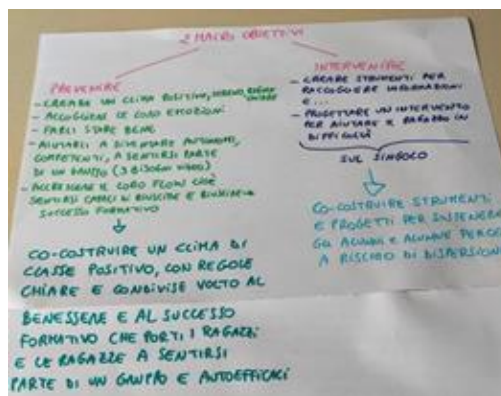 2 MACRO OBIETTIVI
PREVENIRE
- CREARE UN CLIMA POSITIVO, SERENO, REGOLE
CHIARE
- ACCOGLIERE LE LORO EMOZIONI
- FARLI STARE BENE
- AIUTARLI A DIVENTARE AUTONOMI,
COMPETENTI, A SENTIRSI PARTE
DI UN GRUPPO (3 BISOGNI VIDEO)
- ACCRESCERE IL LORO FLOW CIOÈ
SENTIRSI CAPACI DI RIUSCIRE E
SUCCESSO FORMATIVO
CO-COSTRUIRE UN CLIMA DI
CLASSE POSITIVO, CON REGOLE
CHIARE E CONDIVISE VOLTO AL
BENESSERE E AL SUCCESSO
FORMATIVO CHE PORTI I RAGAZZI
E LE RAGAZZE A SENTIRSI
PARTE DI UN GRUPPO E AUTOEFFICACI
INTERVENIRE
- CREARE STRUMENTI PER
RACCOGLIERE INFORMAZIONI
E...
- PROGETTARE UN INTERVENTO
PER AIUTARE IL RAGAZZO IN
DIFFICOLTÀ
SUL SINGOLO
CO-COSTRUIRE STRUMENTI
E PROGETTI PER SOSTENERE
GLI ALUNNI E ALUNNE
A RISCHIO DI DISPERSION